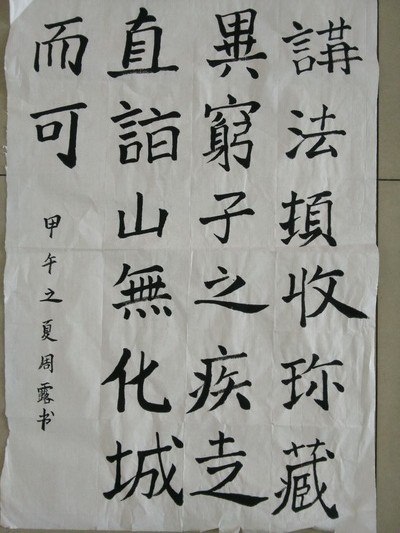 講法頓收珎藏
異窮子之疾走
直詣山無化城
而可
甲午之夏周露书